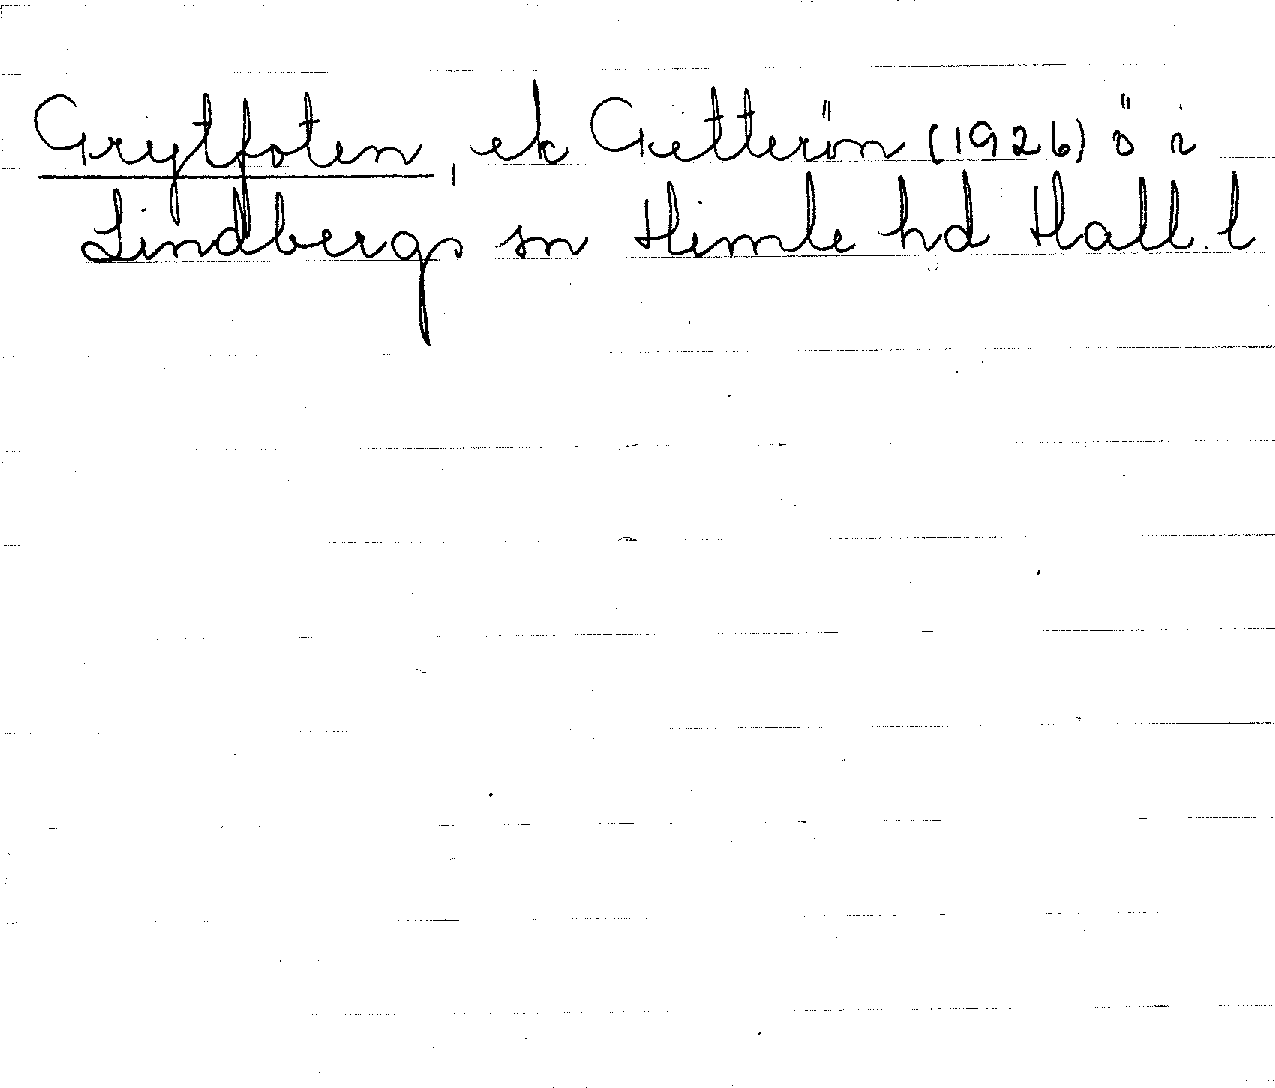 Grytfoten, ek Getterön (1926) ö i
Lindbergs sn Himle hd Hall. l